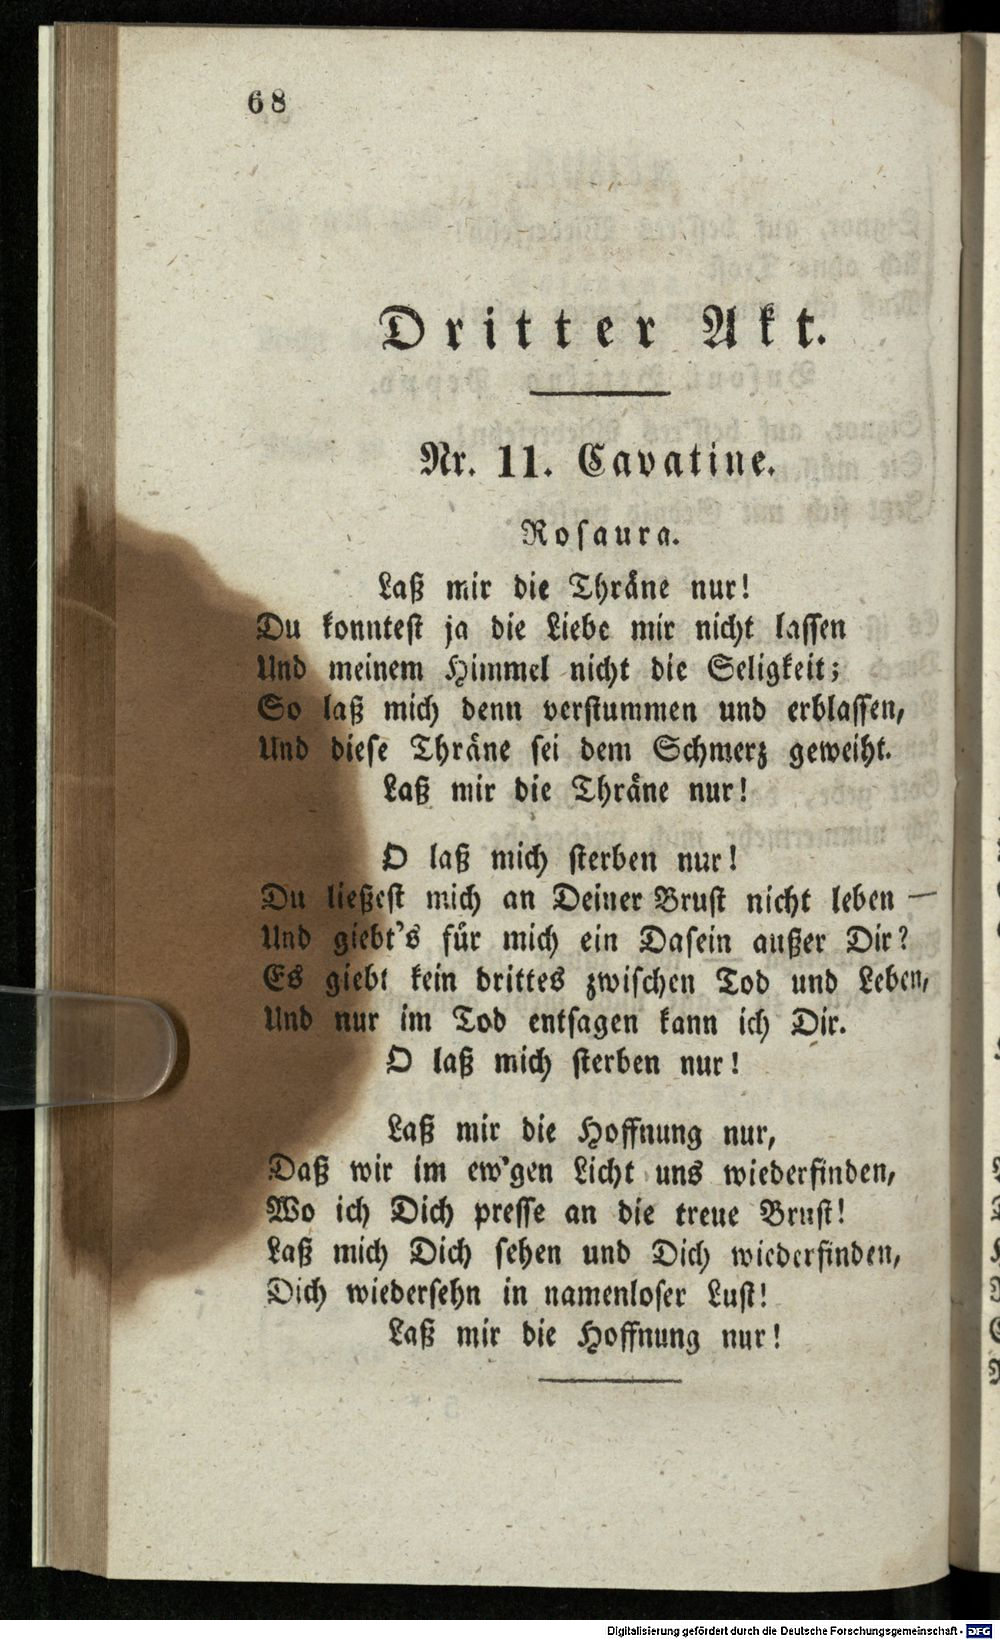 68
Dritter Akt.
Nr. 11. Cavatine.
Rosaura.
Laß mir die Thräne nur!
Du konntest ja die Liebe mir nicht lassen
Und meinem Himmel nicht die Seligkeit;
So laß mich denn verstummen und erblassen,
Und diese Thräne sei dem Schmerz geweiht.
Laß mir die Thräne nur!
O laß mich sterben nur!
Du ließest mich an Deiner Brust nicht leben —
Und giebt's für mich ein Dasein außer Dir?
Es giebt kein drittes zwischen Tod und Leben,
Und nur im Tod entsagen kann ich Dir.
O laß mich sterben nur!
Laß mir die Hoffnung nur,
Daß wir im ew'gen Licht uns wiederfinden,
Wo ich Dich presse an die treue Brust!
Laß mich Dich sehen und Dich wiederfinden,
Dich wiedersehn in namenloser Lust!
Laß mir die Hoffnung nur!
Digitalisierung gefördert durch die Deutsche Forschungsgemeinschaft - DFG